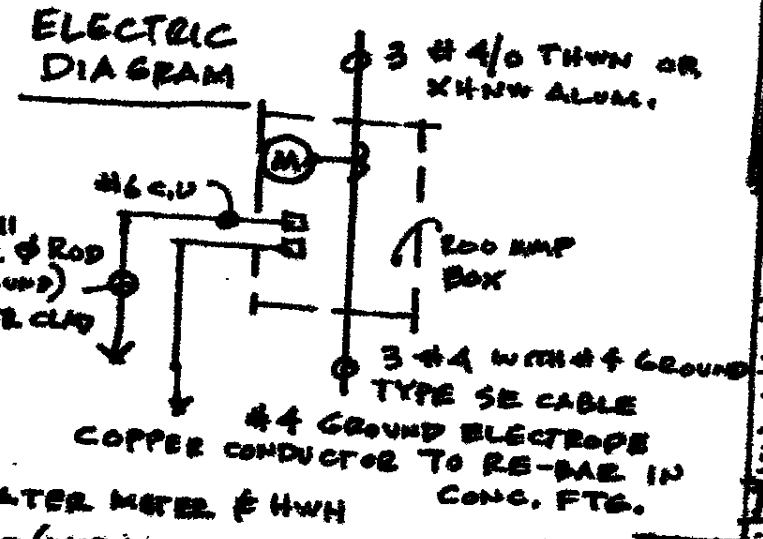 ELECTRIC
DIAGRAM
3 # 4/0 THWN OR
XHNW ALUM.
M
#6 CU
ROD
CLAD
200 AMP
BOX
3 #4 WITH #4 GROUND
TYPE SE CABLE
#4 GROUND ELECTRODE
COPPER CONDUCTOR TO RE-BAR IN
CONC. FTG.
METER & HWH